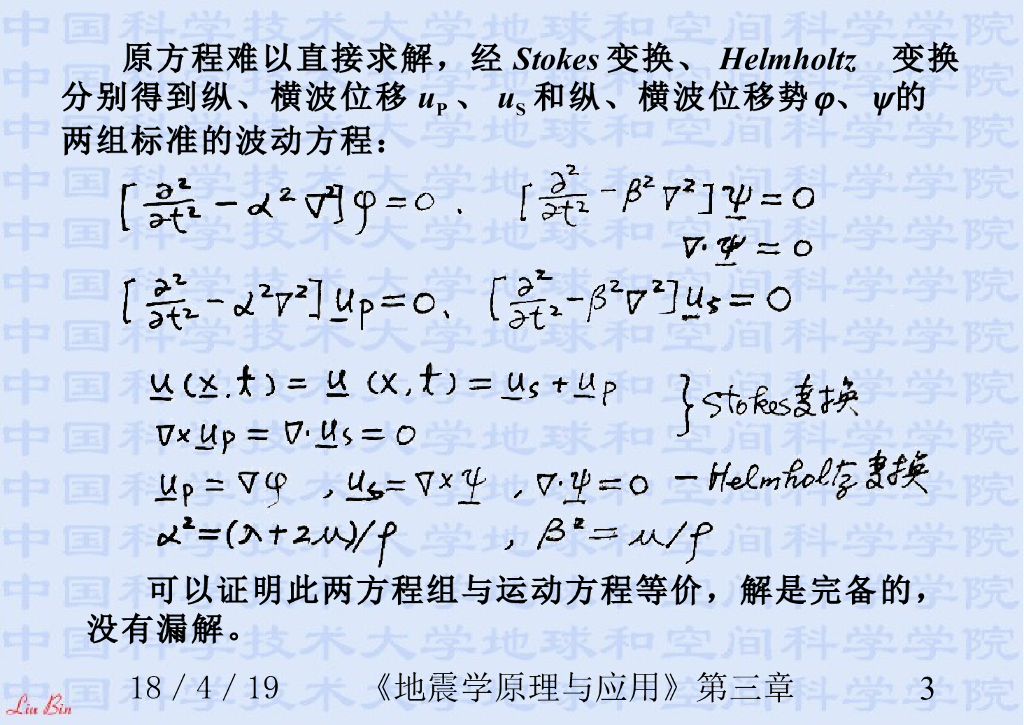 原方程难以直接求解，经 Stokes 变换、 Helmholtz 变换
分别得到纵、横波位移 u_P 、 u_S 和纵、横波位移势 φ、ψ的
两组标准的波动方程：
[∂²/∂t² − α²∇²]φ = 0 . [∂²/∂t² − β²∇²]ψ = 0
∇·ψ = 0
[∂²/∂t² − α²∇²]u_P = 0、 [∂²/∂t² − β²∇²]u_s = 0
u(x.t) = u(x,t) = u_s + u_P } Stokes变换
∇×u_P = ∇·u_s = 0
u_P = ∇φ , u_s = ∇×ψ , ∇·ψ = 0 — Helmholtz变换
α² = (λ+2μ)/ρ , β² = μ/ρ
可以证明此两方程组与运动方程等价，解是完备的，
没有漏解。
18 / 4 / 19 《地震学原理与应用》第三章 3
Liu Bin
中国科学技术大学地球和空间科学学院